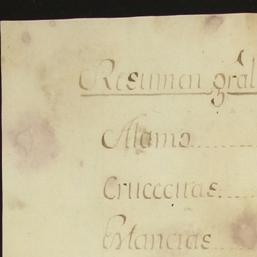 Resumen grâl
Alamo........
Crucecitas.....
Estancias....